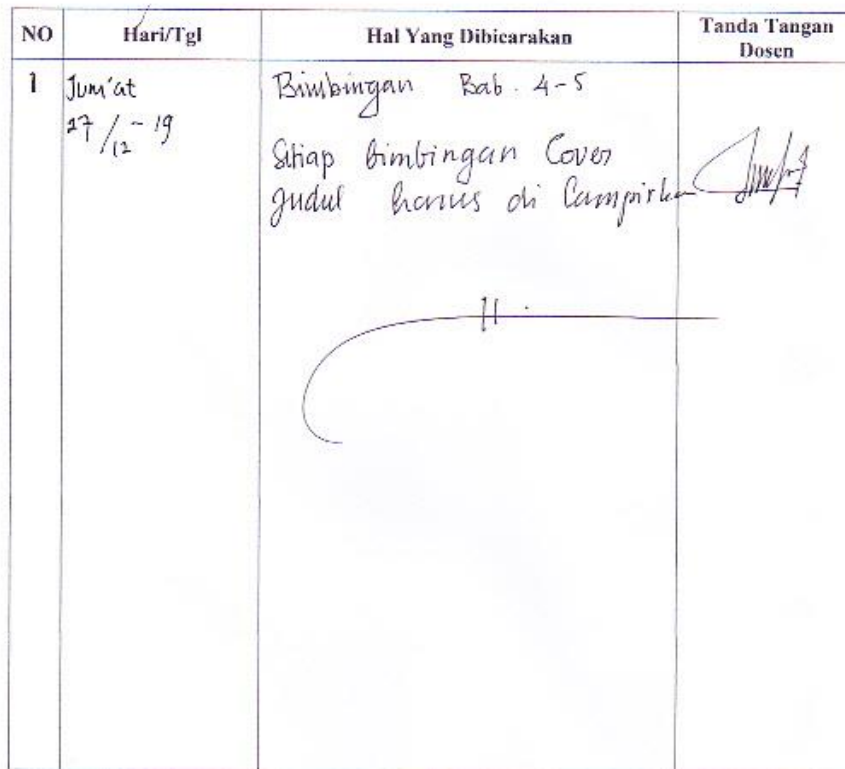 NO Hari/Tgl Hal Yang Dibicarakan Tanda Tangan
Dosen
1 Jum'at Bimbingan Bab. 4-5
27/12-19
Setiap bimbingan Cover
Judul harus di lampirkan